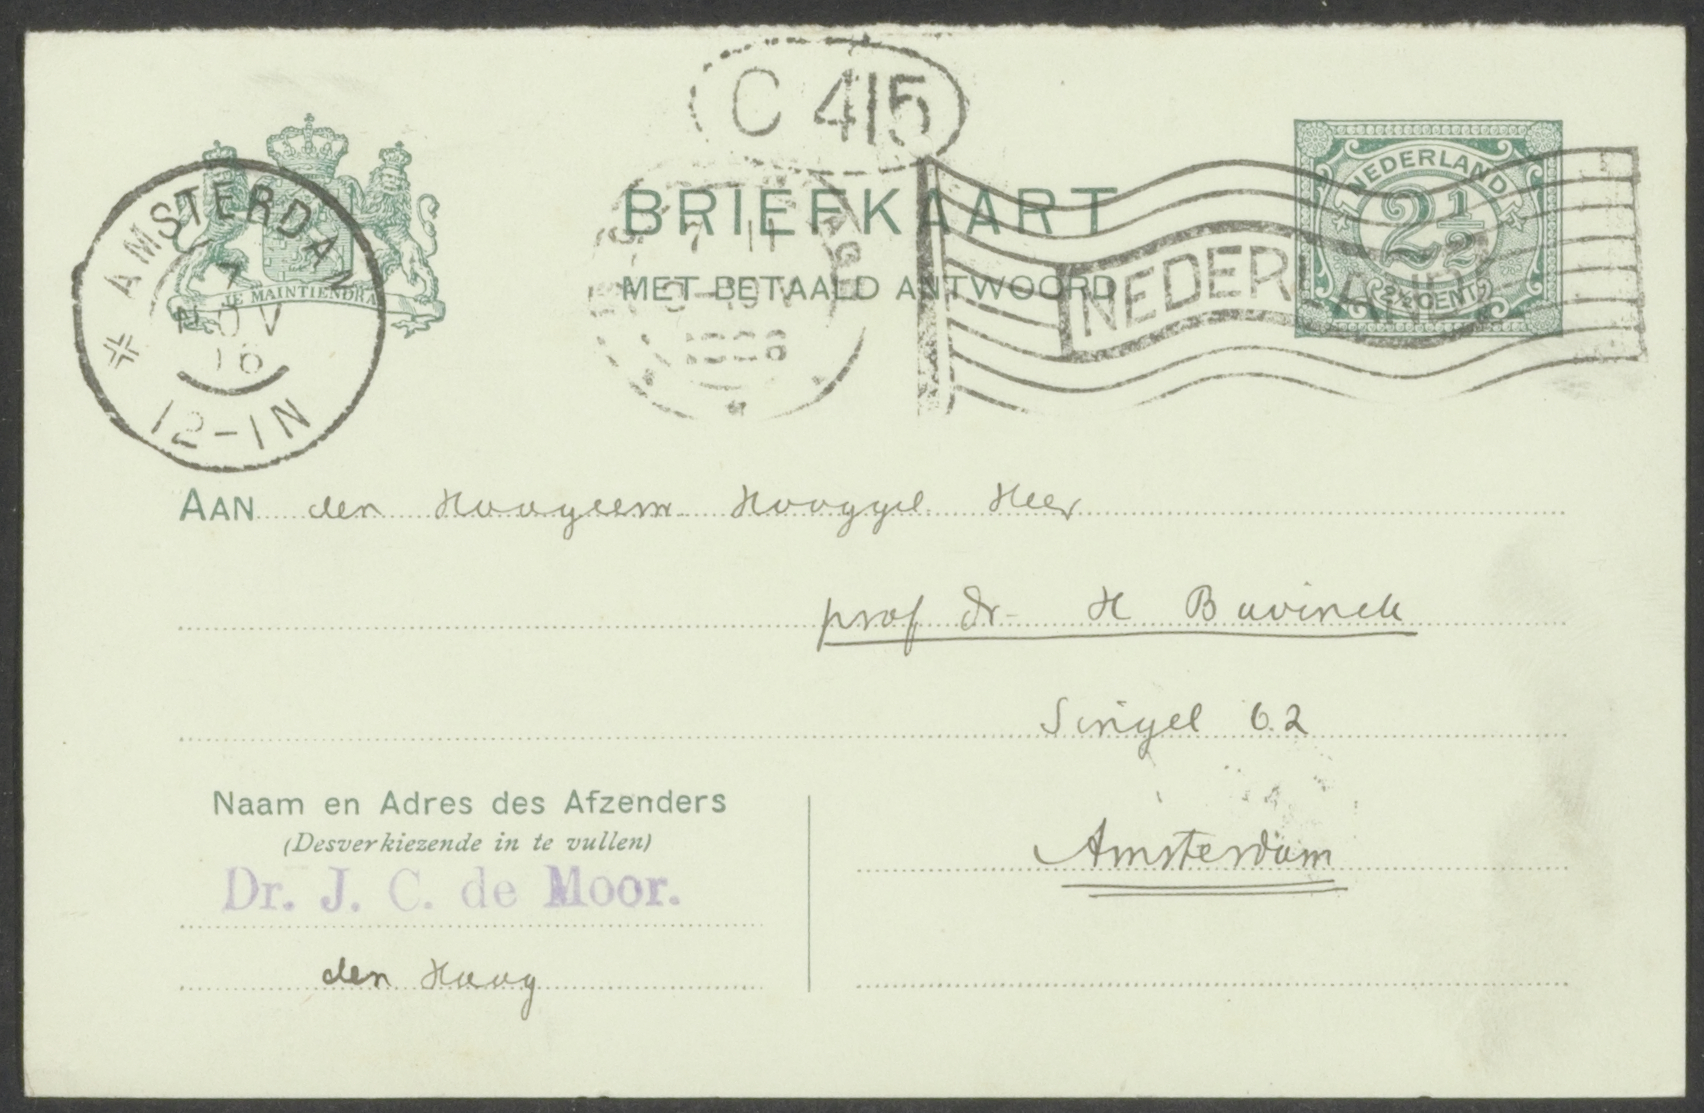 C 415
BRIEFKAART
MET BETAALD ANTWOORD
NEDERLAND
2½
2½ CENT
NEDERLAND
AMSTERDAM
7
NOV
16
12-1N
JE MAINTIENDRAI
7 11
AAN den Hoogeerw. Hooggel. Heer
prof dr- H Bavinck
Singel 62
Amsterdam
Naam en Adres des Afzenders
(Desverkiezende in te vullen)
Dr. J. C. de Moor.
den Haag